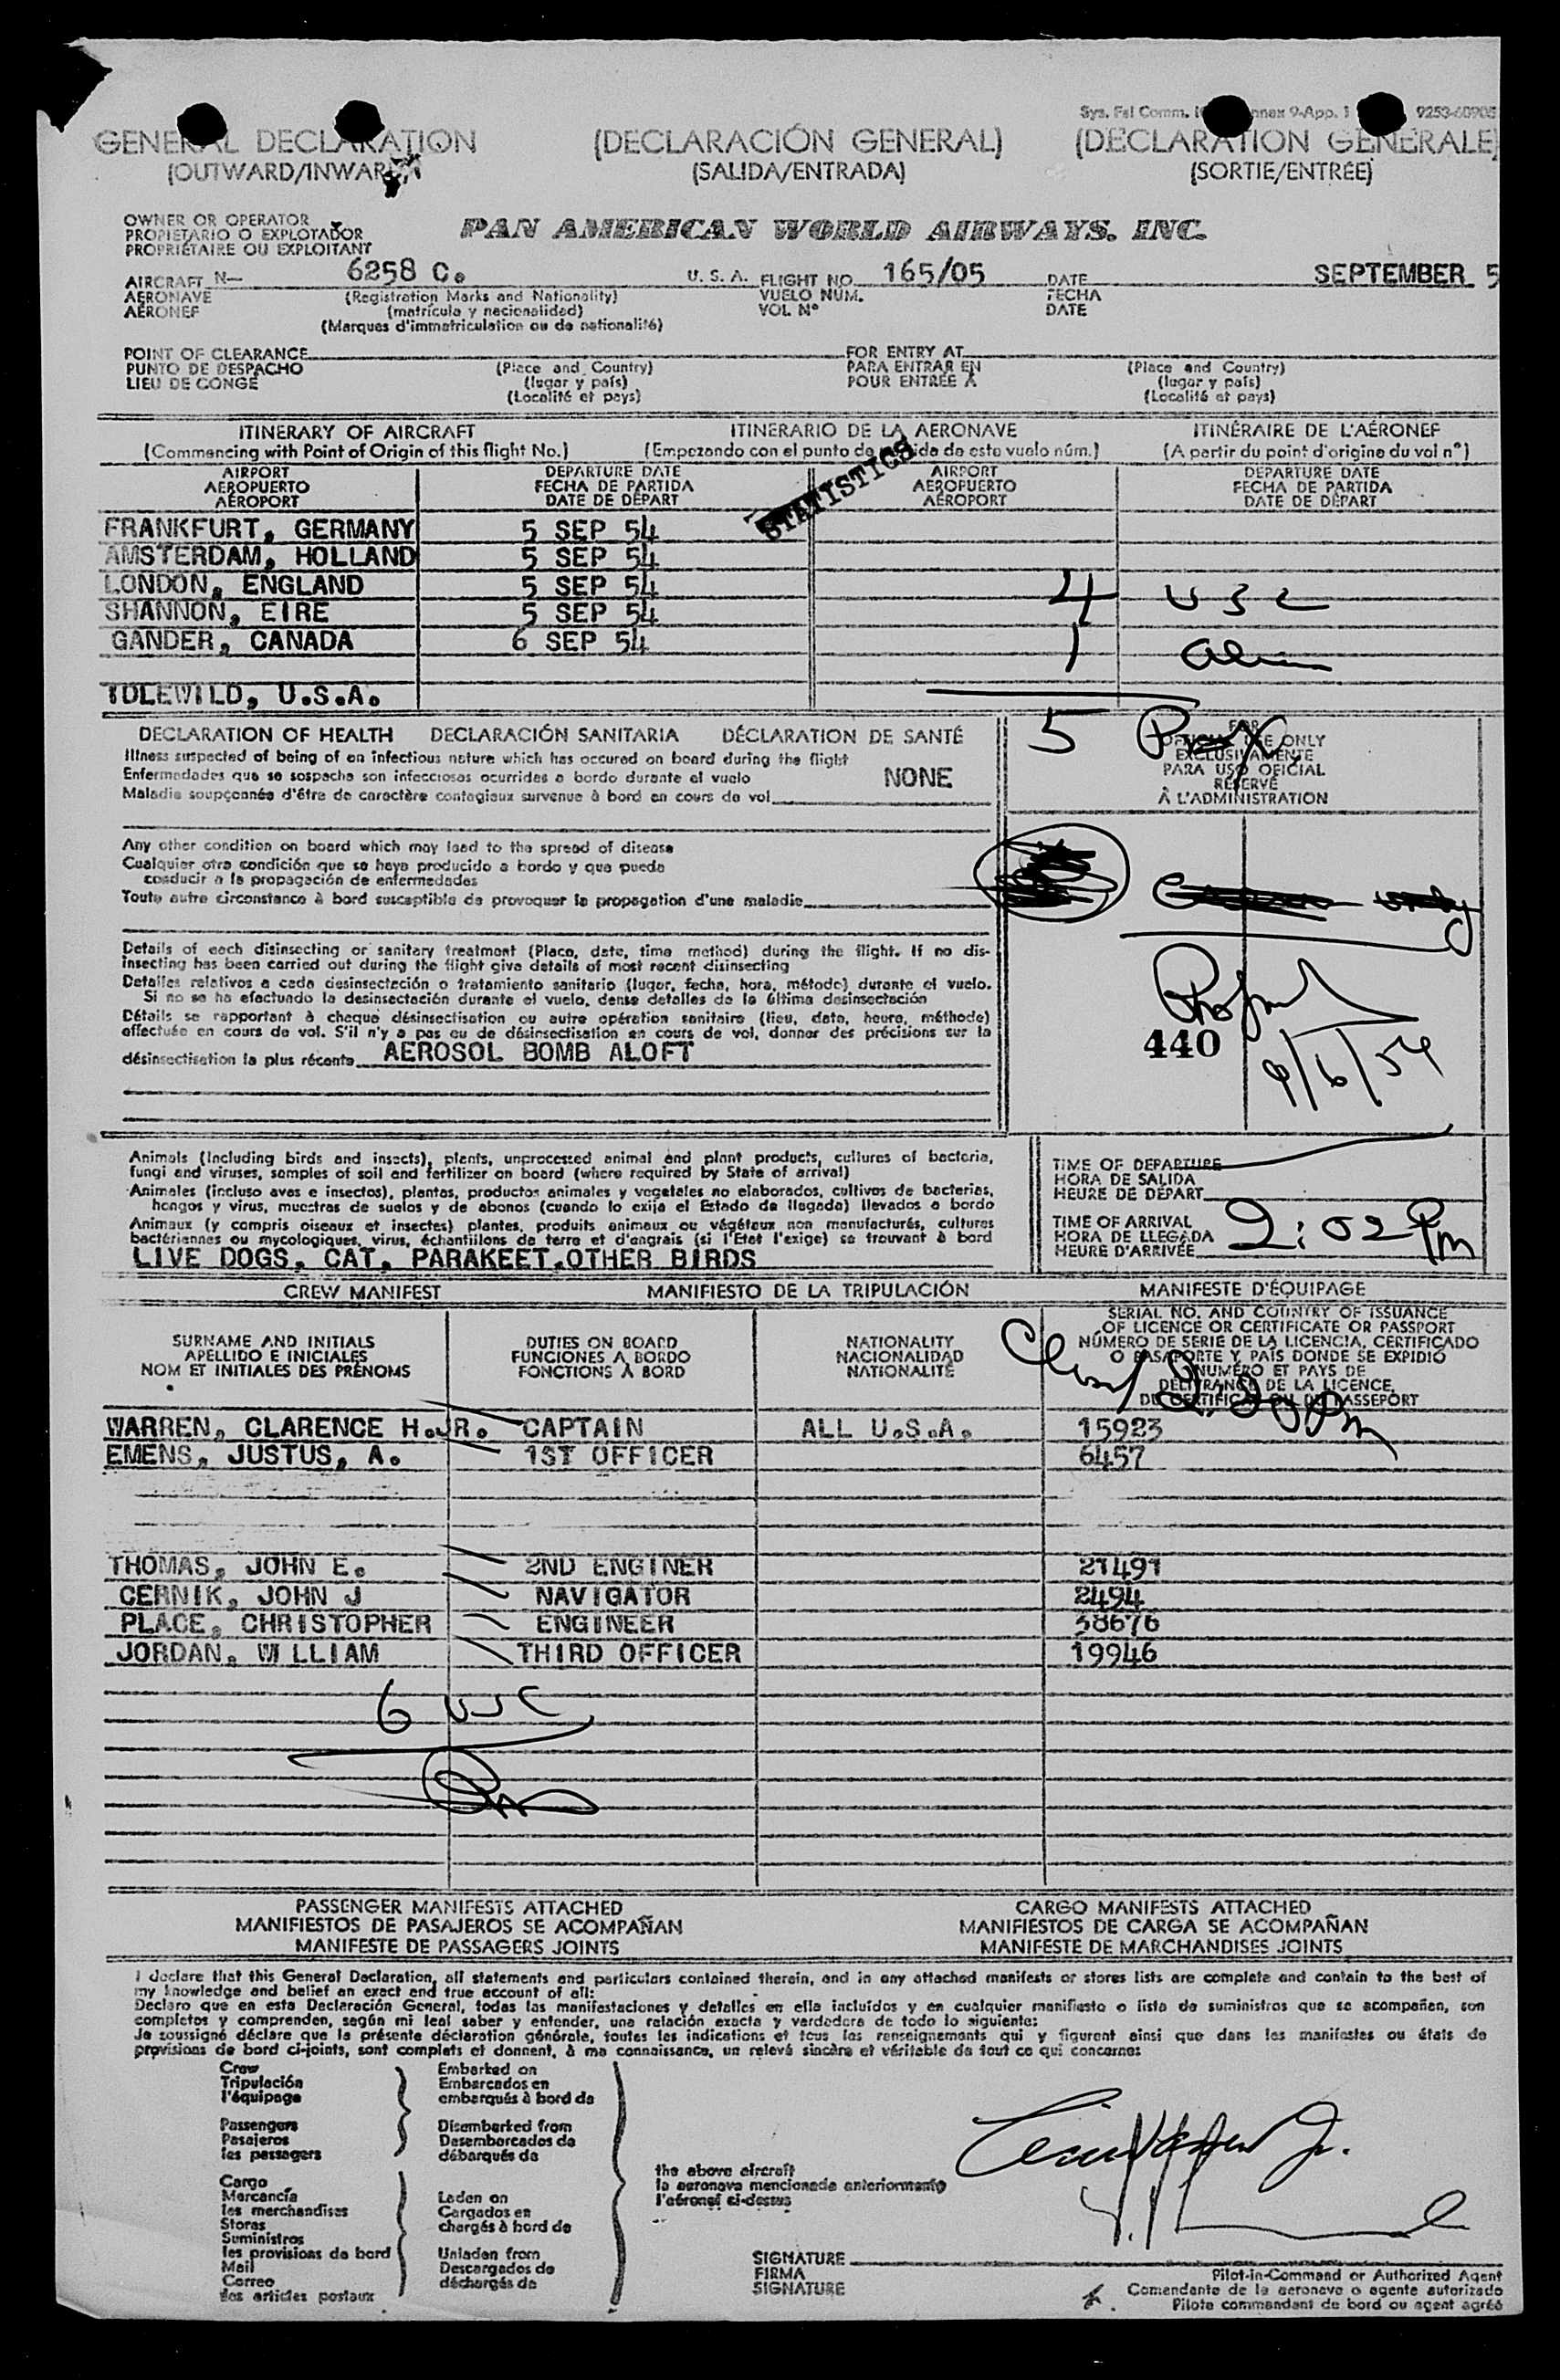 Sys. Fsl Comm. 9-App. 1 9253-60905
GENERAL DECLARATION (DECLARACIÓN GENERAL) (DECLARATION GÉNÉRALE)
(OUTWARD/INWARD) (SALIDA/ENTRADA) (SORTIE/ENTRÉE)
OWNER OR OPERATOR
PROPIETARIO O EXPLOTADOR
PROPRIÉTAIRE OU EXPLOITANT
PAN AMERICAN WORLD AIRWAYS, INC.
AIRCRAFT N— 6258 C. U. S. A. FLIGHT NO. 165/05 DATE SEPTEMBER 5
AERONAVE (Registration Marks and Nationality) VUELO NÚM. FECHA
AÉRONEF (matrícula y nacionalidad) VOL Nº DATE
(Marques d'immatriculation ou de nationalité)
POINT OF CLEARANCE FOR ENTRY AT
PUNTO DE DESPACHO (Place and Country) PARA ENTRAR EN (Place and Country)
LIEU DE CONGÉ (lugar y país) POUR ENTRÉE À (lugar y país)
(Localité et pays) (Localité et pays)
ITINERARY OF AIRCRAFT ITINERARIO DE LA AERONAVE ITINÉRAIRE DE L'AÉRONEF
(Commencing with Point of Origin of this flight No.) (Empezando con el punto de partida de este vuelo núm.) (A partir du point d'origine du vol nº)
AIRPORT DEPARTURE DATE AIRPORT DEPARTURE DATE
AEROPUERTO FECHA DE PARTIDA AEROPUERTO FECHA DE PARTIDA
AÉROPORT DATE DE DÉPART AÉROPORT DATE DE DÉPART
STATISTICS
FRANKFURT, GERMANY 5 SEP 54
AMSTERDAM, HOLLAND 5 SEP 54
LONDON, ENGLAND 5 SEP 54 4 USC
SHANNON, EIRE 5 SEP 54
GANDER, CANADA 6 SEP 54 1 alien
IDLEWILD, U.S.A.
5 Pax
DECLARATION OF HEALTH DECLARACIÓN SANITARIA DÉCLARATION DE SANTÉ
Illness suspected of being of an infectious nature which has occured on board during the flight
Enfermedades que se sospecha son infecciosas ocurridas a bordo durante el vuelo NONE
Maladie soupçonnée d'être de caractère contagieux survenue à bord en cours de vol
FOR
OFFICIAL USE ONLY
EXCLUSIVAMENTE
PARA USO OFICIAL
RÉSERVÉ
À L'ADMINISTRATION
Any other condition on board which may lead to the spread of disease
Cualquier otra condición que se haya producido a bordo y que pueda
conducir a la propagación de enfermedades
Toute autre circonstance à bord susceptible de provoquer la propagation d'une maladie
Details of each disinsecting or sanitary treatment (Place, date, time method) during the flight. If no dis-
insecting has been carried out during the flight give details of most recent disinsecting
Detalles relativos a cada desinsectación o tratamiento sanitario (lugar, fecha, hora, método) durante el vuelo.
Si no se ha efectuado la desinsectación durante el vuelo, dense detalles de la última desinsectación
Détails se rapportant à chaque désinsectisation ou autre opération sanitaire (lieu, date, heure, méthode)
effectuée en cours de vol. S'il n'y a pas eu de désinsectisation en cours de vol, donner des précisions sur la
désinsectisation la plus récente AEROSOL BOMB ALOFT
440
9/6/54
Animals (Including birds and insects), plants, unprocessed animal and plant products, cultures of bacteria,
fungi and viruses, samples of soil and fertilizer on board (where required by State of arrival)
Animales (incluso aves e insectos), plantas, productos animales y vegetales no elaborados, cultivos de bacterias,
hongos y virus, muestras de suelos y de abonos (cuando lo exija el Estado de llegada) llevados a bordo
Animaux (y compris oiseaux et insectes) plantes, produits animaux ou végétaux non manufacturés, cultures
bactériennes ou mycologiques, virus, échantillons de terre et d'engrais (si l'État l'exige) se trouvant à bord
LIVE DOGS, CAT, PARAKEET,OTHER BIRDS
TIME OF DEPARTURE
HORA DE SALIDA
HEURE DE DÉPART
TIME OF ARRIVAL
HORA DE LLEGADA 2:02 Pm
HEURE D'ARRIVÉE
CREW MANIFEST MANIFIESTO DE LA TRIPULACIÓN MANIFESTE D'ÉQUIPAGE
SURNAME AND INITIALS DUTIES ON BOARD NATIONALITY
APELLIDO E INICIALES FUNCIONES A BORDO NACIONALIDAD
NOM ET INITIALES DES PRÉNOMS FONCTIONS À BORD NATIONALITÉ
SERIAL NO. AND COUNTRY OF ISSUANCE
OF LICENCE OR CERTIFICATE OR PASSPORT
NÚMERO DE SERIE DE LA LICENCIA, CERTIFICADO
O PASAPORTE Y PAÍS DONDE SE EXPIDIÓ
NUMÉRO ET PAYS DE
DÉLIVRANCE DE LA LICENCE,
DU CERTIFICAT OU DU PASSEPORT
WARREN, CLARENCE H.JR. CAPTAIN ALL U.S.A. 15923
EMENS, JUSTUS, A. 1ST OFFICER 6457
THOMAS, JOHN E. 2ND ENGINER 21491
CERNIK, JOHN J NAVIGATOR 2494
PLACE, CHRISTOPHER ENGINEER 38676
JORDAN, WILLIAM THIRD OFFICER 19946
6 USC
PASSENGER MANIFESTS ATTACHED CARGO MANIFESTS ATTACHED
MANIFIESTOS DE PASAJEROS SE ACOMPAÑAN MANIFIESTOS DE CARGA SE ACOMPAÑAN
MANIFESTE DE PASSAGERS JOINTS MANIFESTE DE MARCHANDISES JOINTS
I declare that this General Declaration, all statements and particulars contained therein, and in any attached manifests or stores lists are complete and contain to the best of
my knowledge and belief an exact and true account of all:
Declaro que en esta Declaración General, todas las manifestaciones y detalles en ella incluidos y en cualquier manifiesto o lista de suministros que se acompañen, son
completos y comprenden, según mi leal saber y entender, una relación exacta y verdadera de todo lo siguiente:
Je soussigné déclare que la présente déclaration générale, toutes les indications et tous les renseignements qui y figurent ainsi que dans les manifestes ou états de
provisions de bord ci-joints, sont complets et donnent, à ma connaissance, un relevé sincère et véritable de tout ce qui concerne:
Crew Embarked on
Tripulación Embarcados en
l'équipage embarqués à bord de
Passengers Disembarked from
Pasajeros Desembarcados de
les passagers débarqués de
the above aircraft
la aeronave mencionada anteriormente
l'aéronef ci-dessus
Cargo
Mercancía Laden on
les merchandises Cargados en
Stores chargés à bord de
Suministros
les provisions de bord Unladen from
Mail Descargados de
Correo déchargés de
des articles postaux
SIGNATURE
FIRMA
SIGNATURE
Pilot-in-Command or Authorized Agent
Comandante de la aeronave o agente autorizado
Pilote commandant de bord ou agent agréé